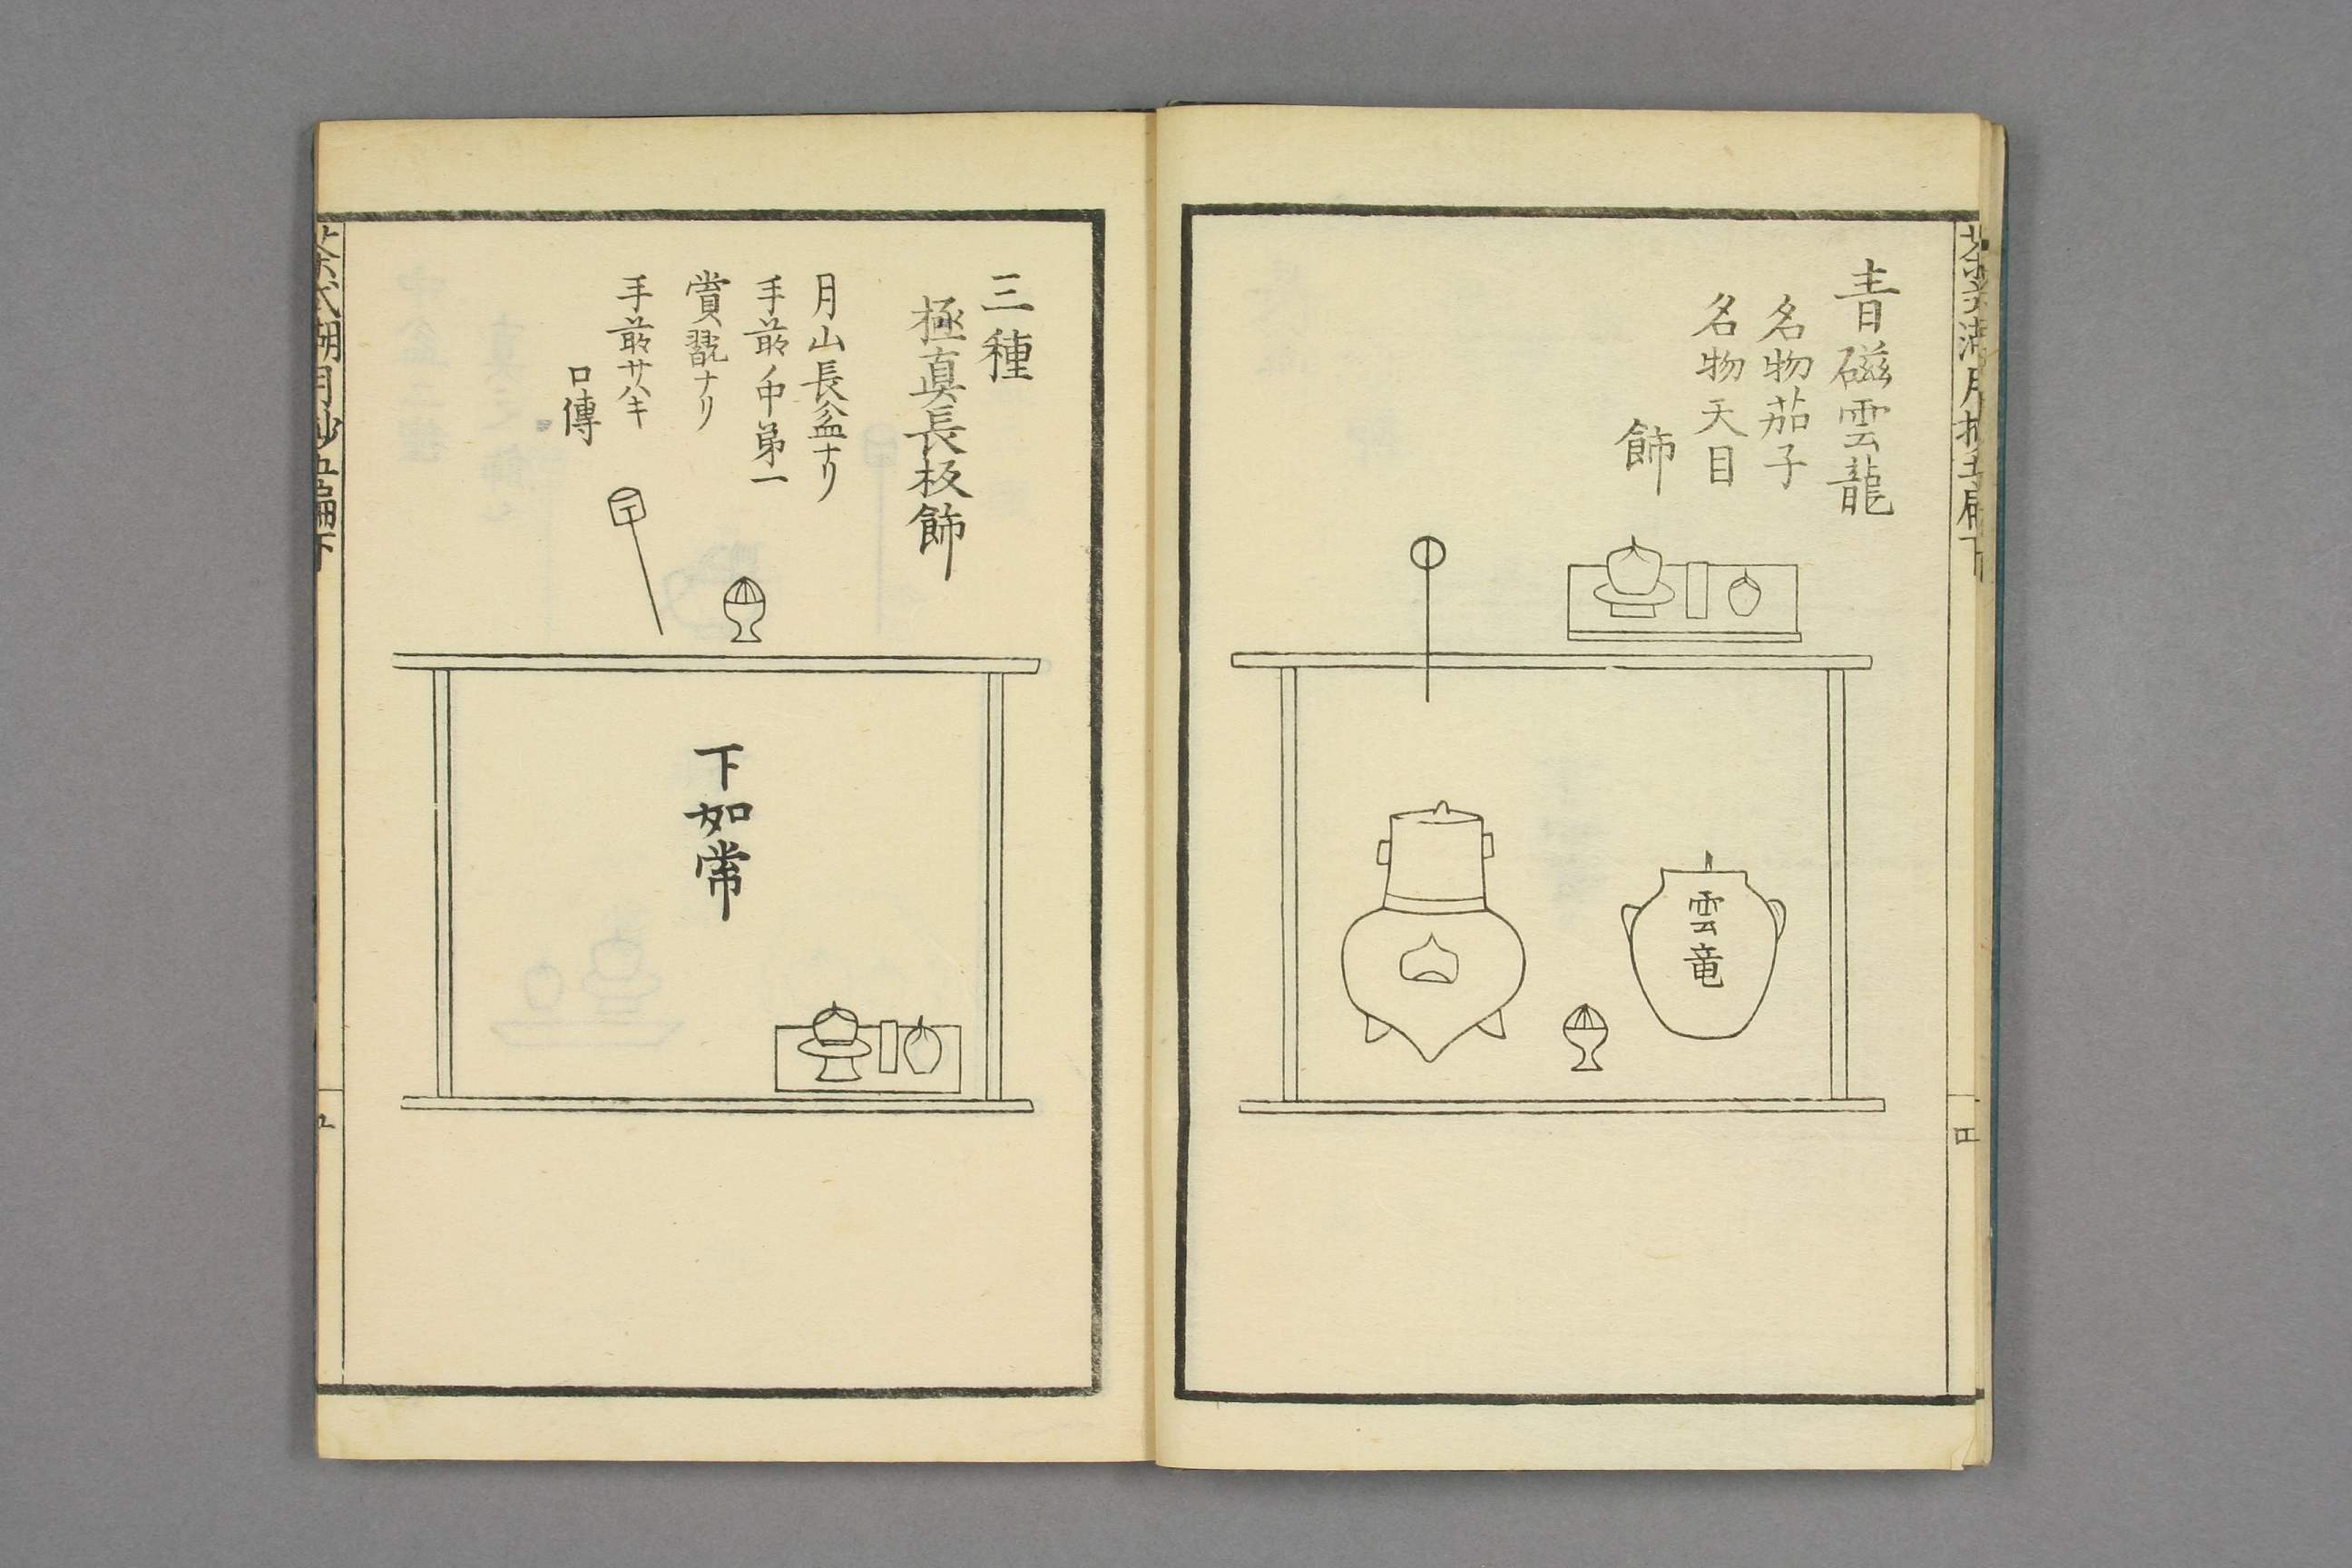 青磁雲龍
名物茄子
名物天目
飾
雲竜
三種
極眞長板飾
月山長盆ナリ
手前ノ中第一
賞翫ナリ
手前サハキ
口傳
下如常
茶式湖月抄五編下
五